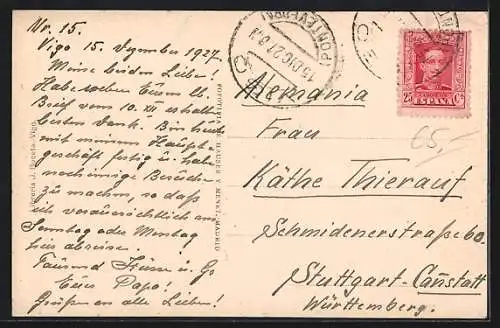 Nr. 15.
Vigo 15. Dezember 1927.
Meine beiden Liebe!
Habe soeben Euren lb.
Brief vom 10. XII. erhalten
besten Dank! Bin heute
mit meinem Haupt-
geschäft fertig u. habe
noch einige Besuche
zu machen, so daß
ich voraussichtlich am
Sonntag oder Montag
hier abreise.
Tausend Grüsse u.
Euer Papa!
Grüßen an alle Lieben!
FOTOTIPIA DE HAUSER Y MENET.-MADRID
(PONTEVEDRA)
15.DIC.27
25 Cs.
ESPAÑA
65,-
Alemania
Frau
Käthe Thierauf
Schmidenerstraße 60.
Stuttgart-Canstatt
Württemberg.